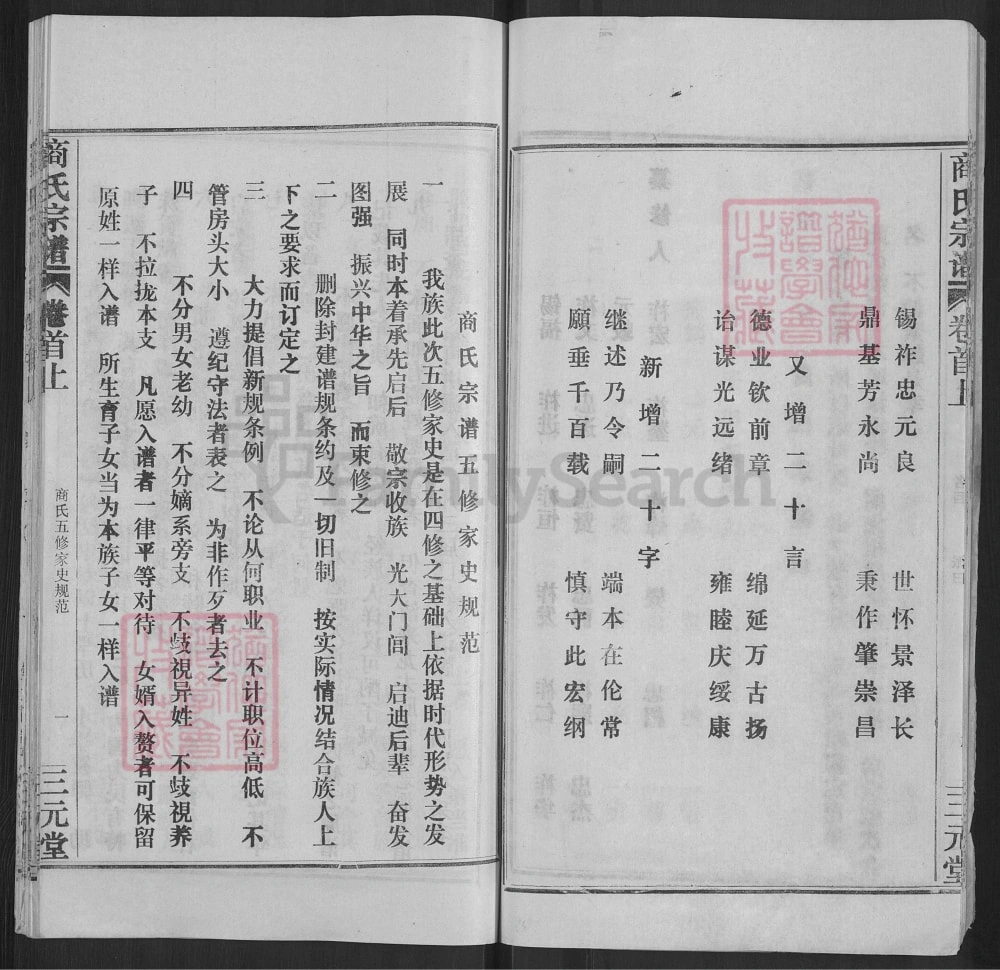 商氏宗谱 卷首上
三元堂
锡祚忠元良 世怀景泽长
鼎基芳永尚 秉作肇崇昌
又增二十言
德业钦前章 绵延万古扬
诒谋光远绪 雍睦庆绥康
新增二十字
继述乃令嗣 端本在伦常
願垂千百载 慎守此宏纲
商氏宗谱五修家史规范
一 我族此次五修家史是在四修之基础上依据时代形势之发
展 同时本着承先启后 敬宗收族 光大门闾 启迪后辈 奋发
图强 振兴中华之旨 而束修之
二 删除封建谱规条约及一切旧制 按实际情况结合族人上
下之要求而订定之
三 大力提倡新规条例 不论从何职业 不计职位高低 不
管房头大小 遵纪守法者表之 为非作歹者去之
四 不分男女老幼 不分嫡系旁支 不歧視异姓 不歧視养
子 不拉拢本支 凡愿入谱者一律平等对待 女婿入赘者可保留
原姓一样入谱 所生育子女当为本族子女一样入谱
商氏宗谱 卷首上
商氏五修家史规范
一
三元堂
FamilySearch